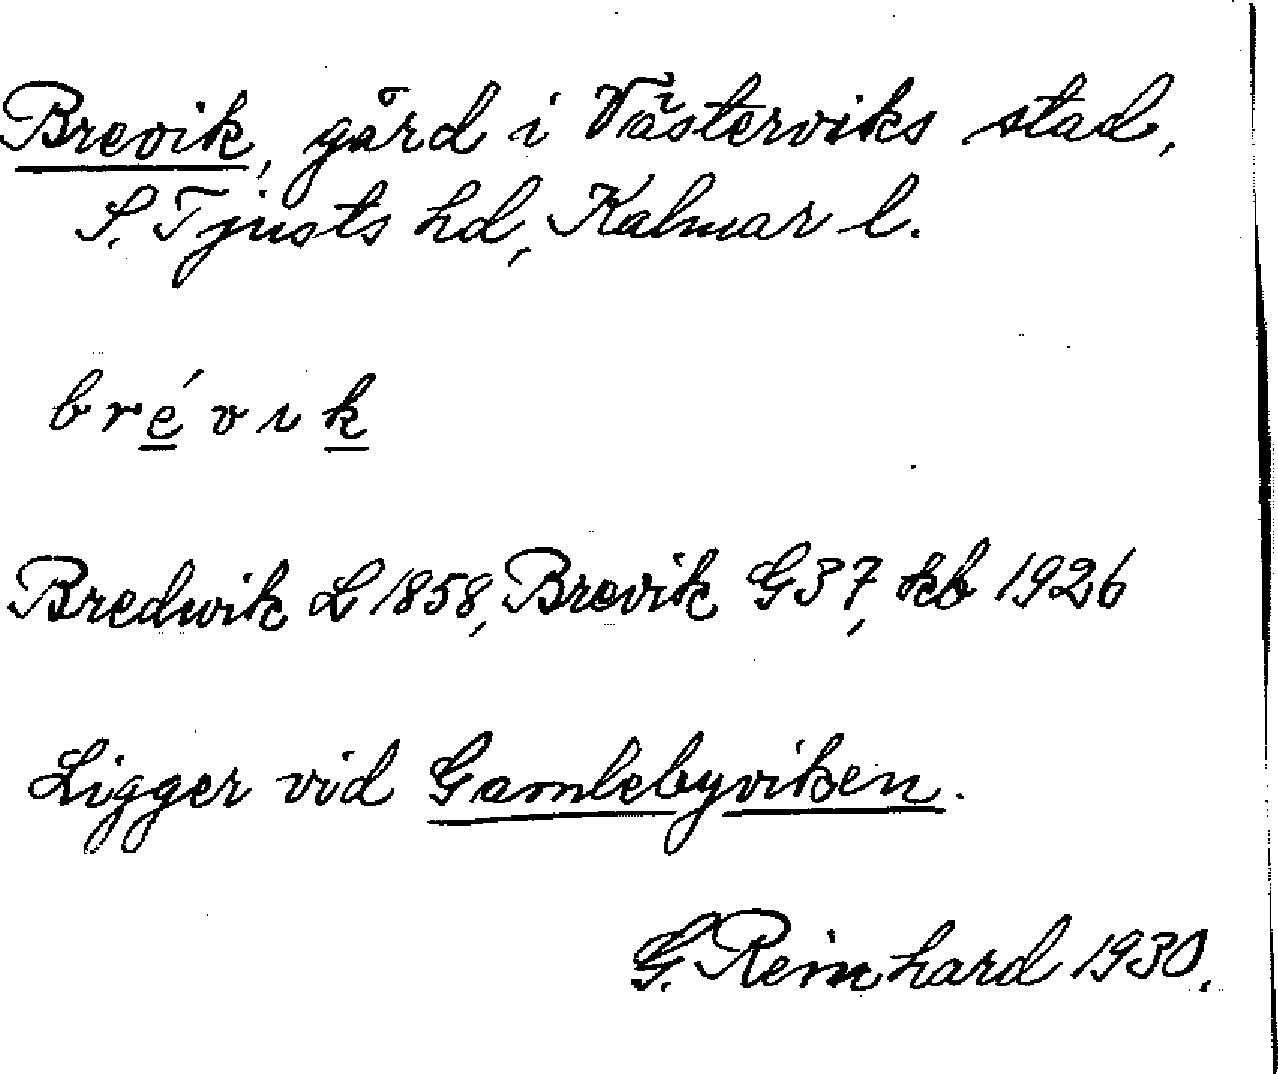 Brevik, gård i Västerviks stad,
S. Tjusts hd, Kalmar l.
brévık
Bredwik L 1858, Brevik G 37, kb 1926
Ligger vid Gamlebyviken.
G. Reinhard 1930.